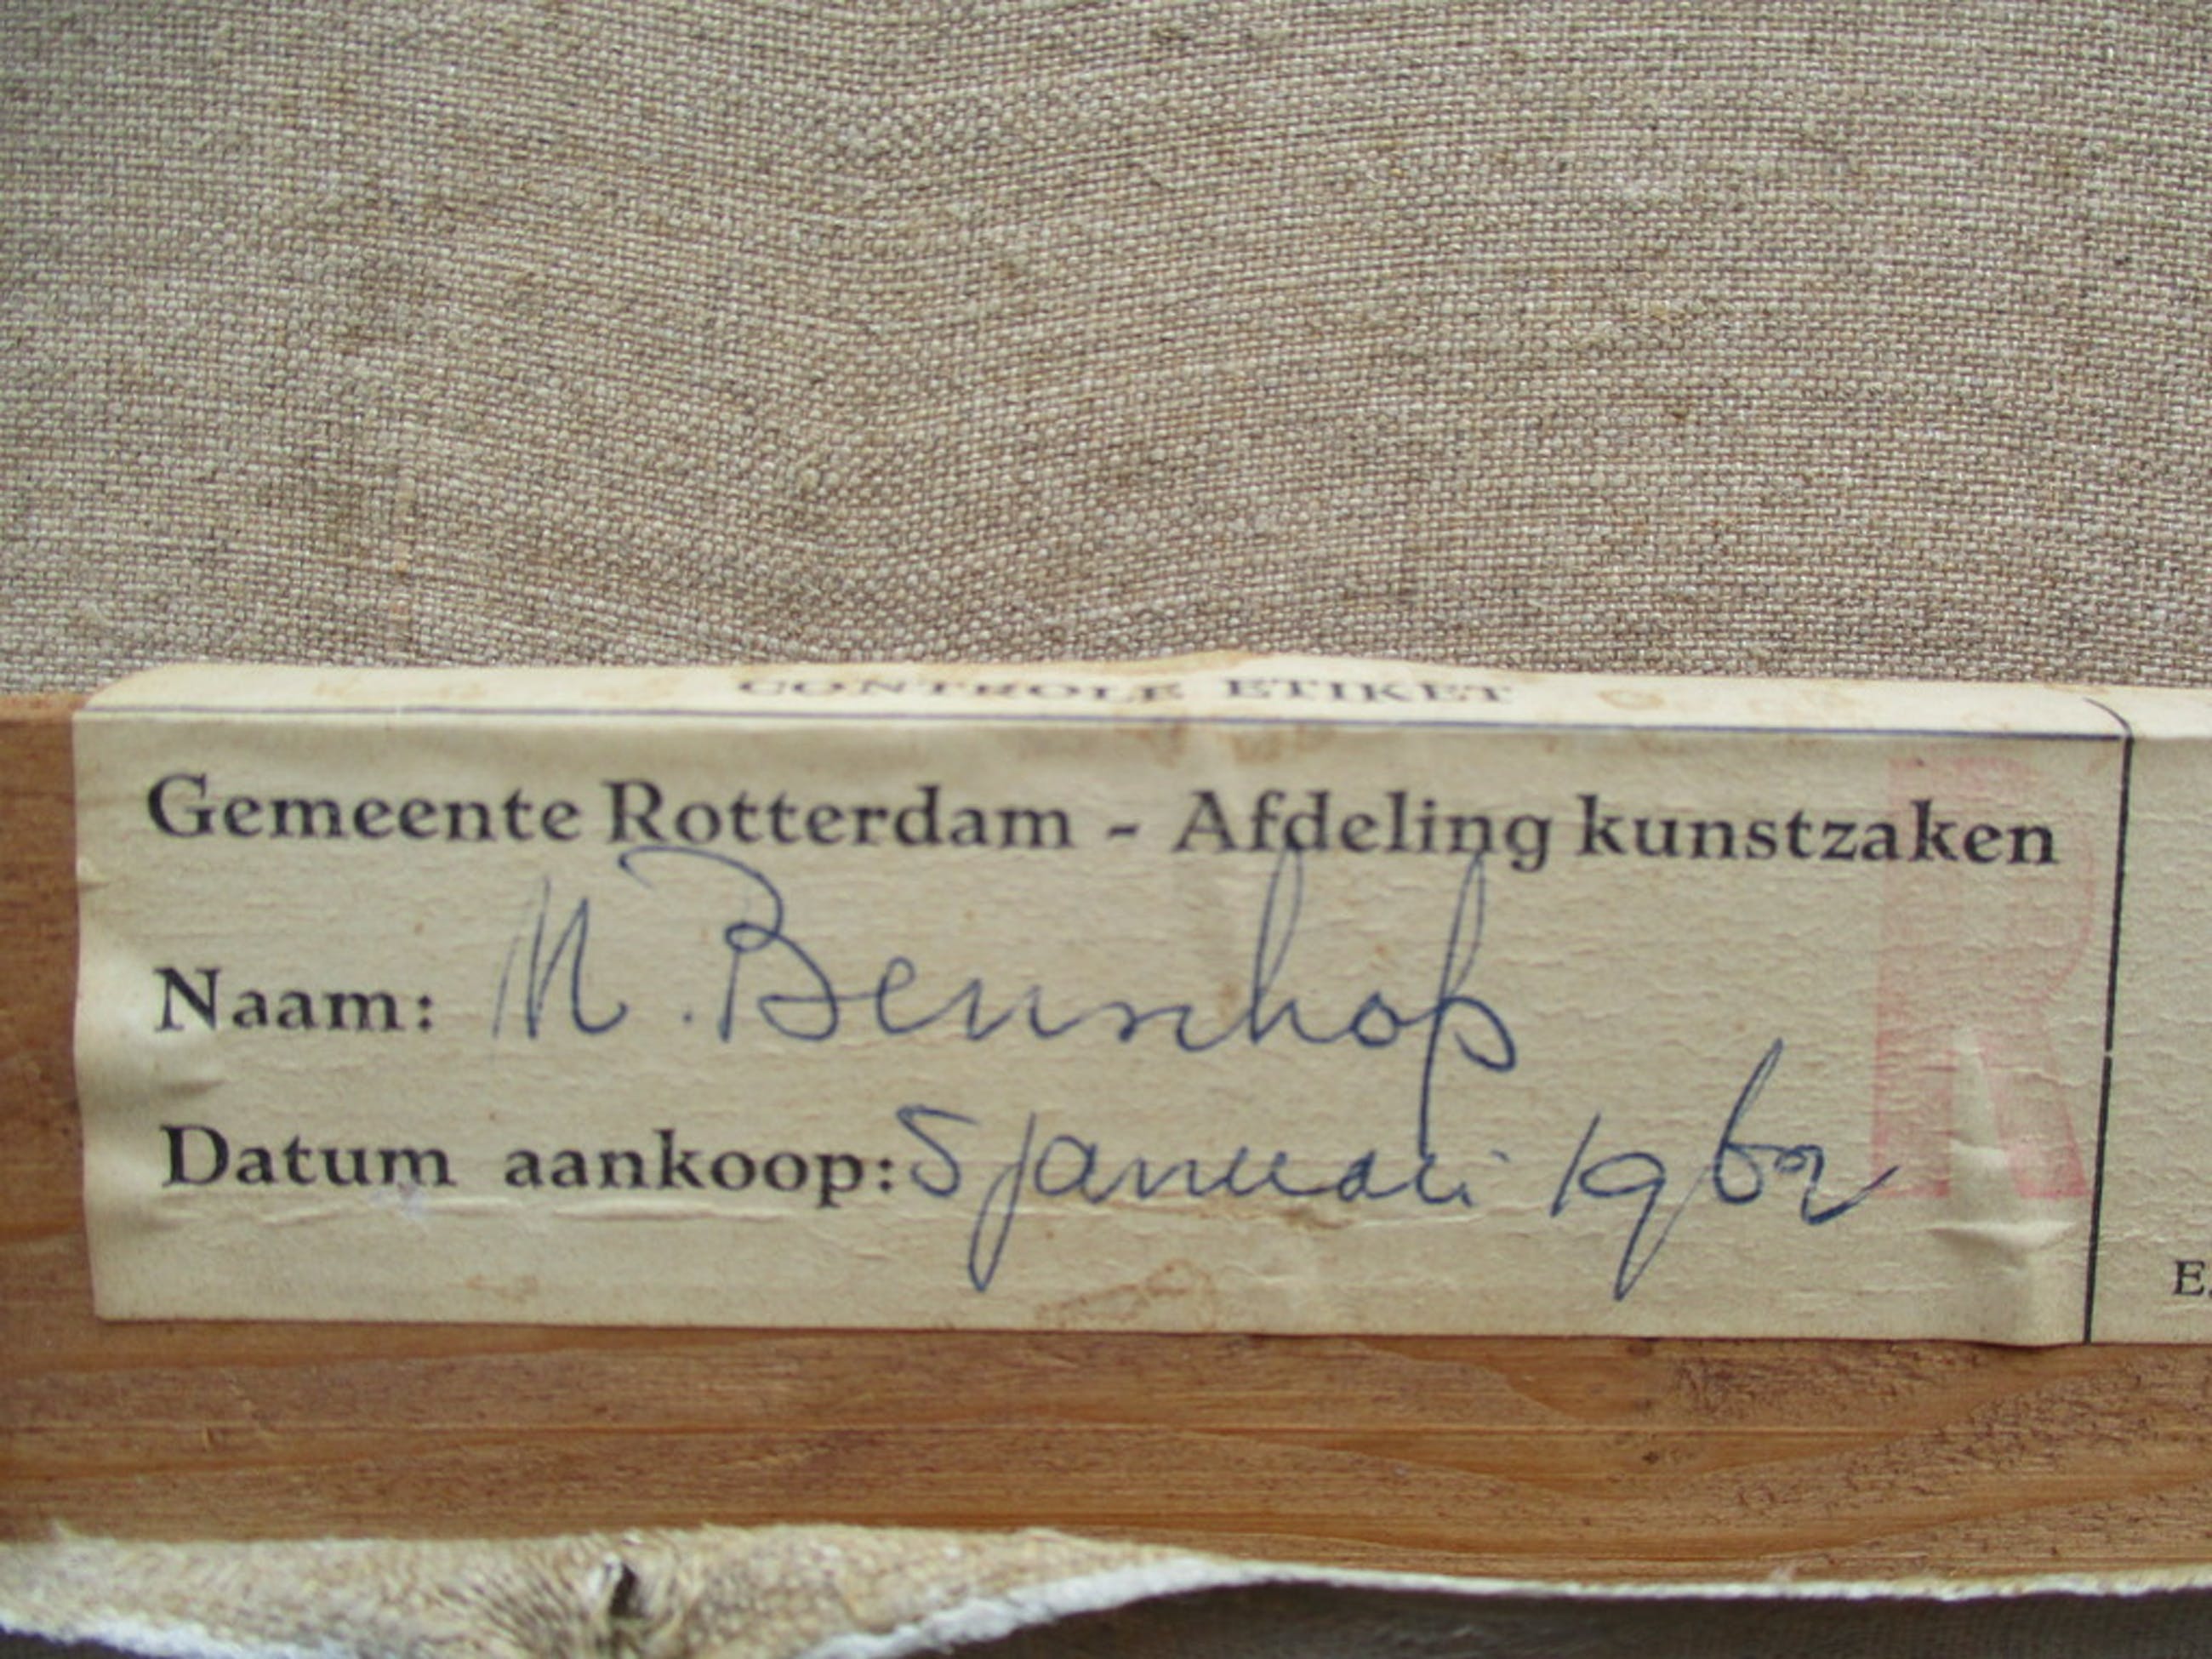 CONTROLE ETIKET
Gemeente Rotterdam - Afdeling kunstzaken
R
Naam: N. Benschop
Datum aankoop: 5 januari 1962
E.